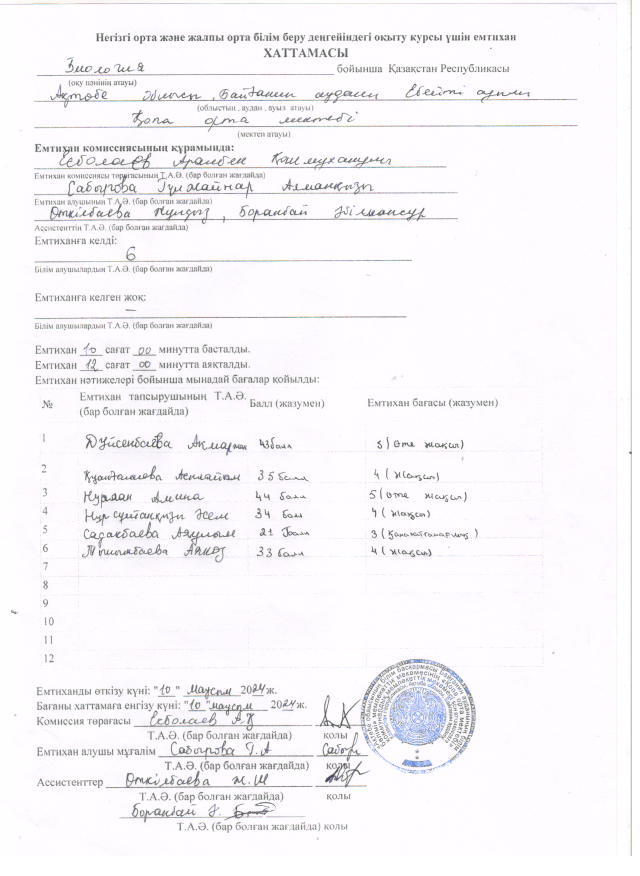 Негізгі орта және жалпы орта білім беру деңгейіндегі оқыту курсы үшін емтихан
ХАТТАМАСЫ
Биология бойынша Қазақстан Республикасы
(оқу пәнінің атауы)
Ақтөбе облысы, Байғанин ауданы Ебейті ауылы
(облыстың , аудан , ауыл атауы)
Қопа орта мектебі
(мектеп атауы)
Емтихан комиссиясының құрамында:
Есболаев
Емтихан комиссиясы төрағасының Т.А.Ә. (бар болған жағдайда)
Сабырова Гүлжайнар Алманқызы
Емтихан алушының Т.А.Ә. (бар болған жағдайда)
Өткілбаева Жұлдыз , Боранбай Әбілмансур
Ассистенттің Т.А.Ә. (бар болған жағдайда)
Емтиханға келді:
6
Білім алушылардың Т.А.Ә. (бар болған жағдайда)
Емтиханға келген жоқ:
—
Білім алушылардың Т.А.Ә. (бар болған жағдайда)
Емтихан 10 сағат 00 минутта басталды.
Емтихан 12 сағат 00 минутта аяқталды.
Емтихан нәтижелері бойынша мынадай бағалар қойылды:
№ Емтихан тапсырушының Т.А.Ә. (бар болған жағдайда) Балл (жазумен) Емтихан бағасы (жазумен)
1 Дүйсенбаева Ақмарал 43 балл 5 (өте жақсы)
2 35 балл 4 (жақсы)
3 Нұрлан Амина 44 балл 5 (өте жақсы)
4 Нұрсұлтанқызы Әсем 34 балл 4 (жақсы)
5 Садақбаева Аяулым 21 балл 3 (қанағаттанарлық)
6 33 балл 4 (жақсы)
7
8
9
10
11
12
Емтиханды өткізу күні: "10" маусым 2024 ж.
Бағаны хаттамаға енгізу күні: "10" маусым 2024 ж.
Комиссия төрағасы Есболаев А.Қ
Т.А.Ә. (бар болған жағдайда) қолы
Емтихан алушы мұғалім Сабырова Г.А Сабыр
Т.А.Ә. (бар болған жағдайда) қолы
Ассистенттер Өткілбаева Ж.Ш
Т.А.Ә. (бар болған жағдайда) қолы
Боранбай Ә.
Т.А.Ә. (бар болған жағдайда) қолы